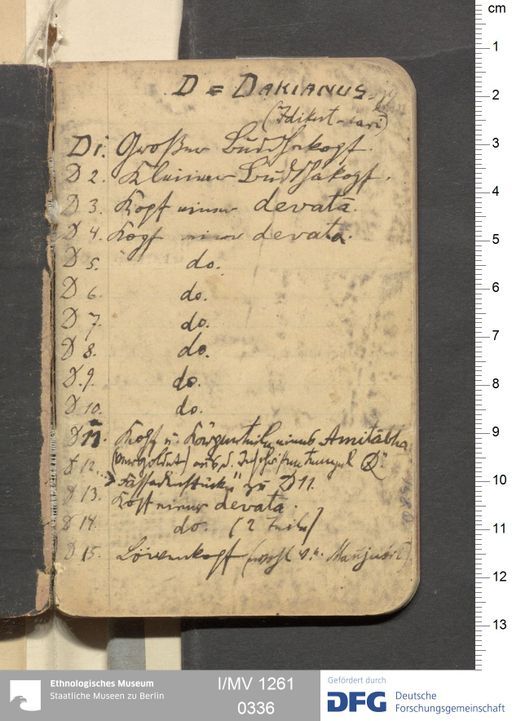 D = DAKIANUS.
(Idikut-sari)
D1. Großer Buddhakopf.
D 2. Kleiner Buddhakopf.
D 3. Kopf einer devatā.
D 4. Kopf einer devatā.
D 5. do.
D 6. do.
D 7. do.
D 8. do.
D. 9. do.
D 10. do.
D 11. Kopf u. Körperteile eines Amitābha
D 12. (vergoldet) aus d. Tempel Q"
"Fassadenstücke" zu D 11.
D 13. Kopf einer devatā.
D 14. do. (2 Teile)
D 15. Löwenkopf (wohl v. e. Manjuśrī)
cm
1
2
3
4
5
6
7
8
9
10
11
12
13
Ethnologisches Museum
Staatliche Museen zu Berlin
I/MV 1261
0336
Gefördert durch
DFG Deutsche
Forschungsgemeinschaft